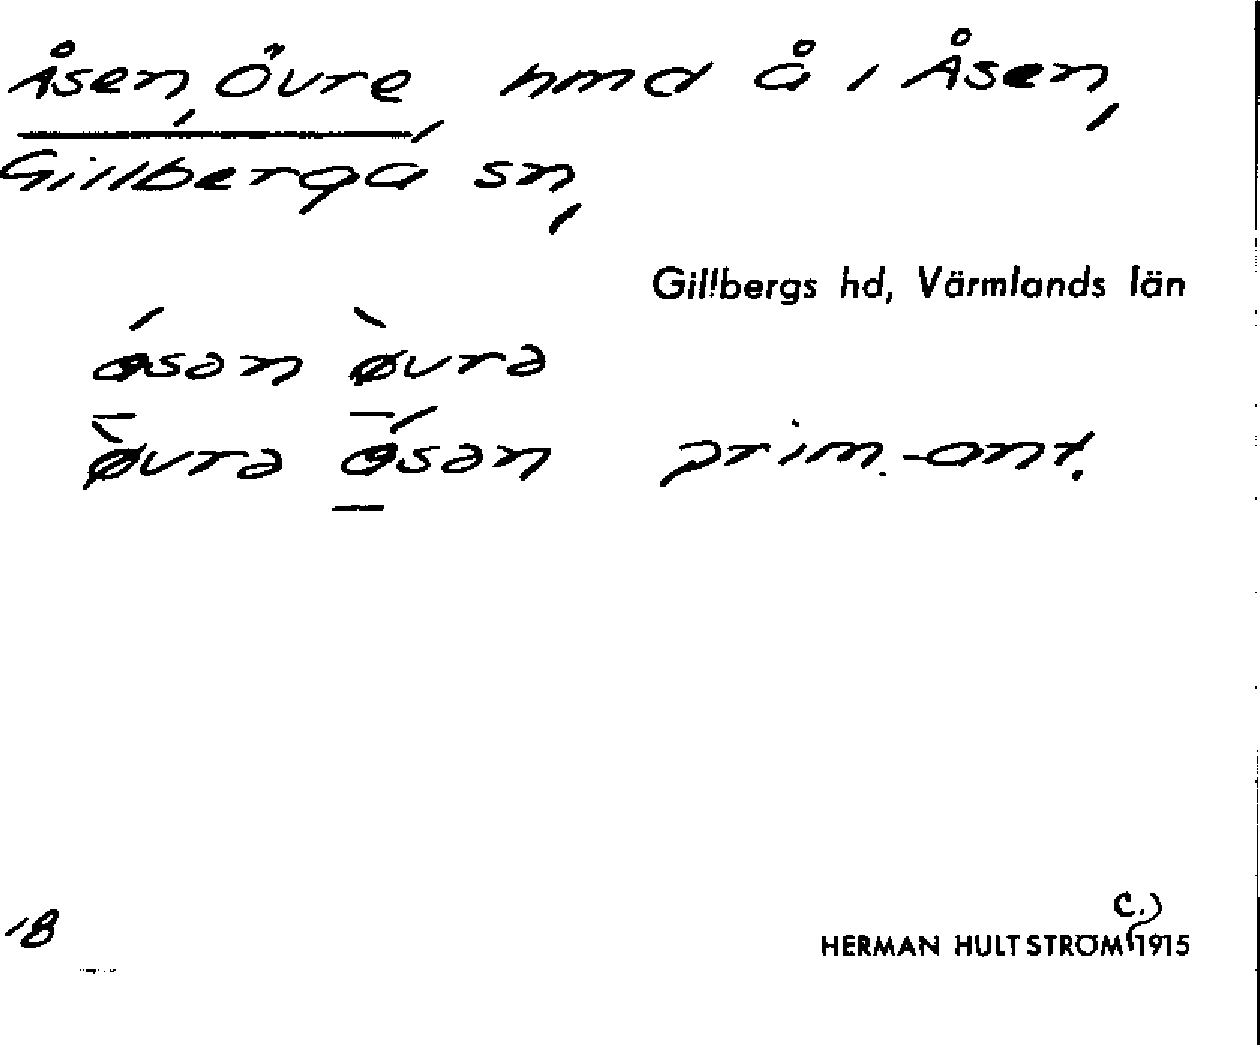 Åsen, Övre, hmd å 1 Åsen,
Gillberga sn,
Gillbergs hd, Värmlands län
ósən ø̀vrə
ø̀vrə ósən prim.-ant.
18
HERMAN HULTSTRÖM (C.) 1915